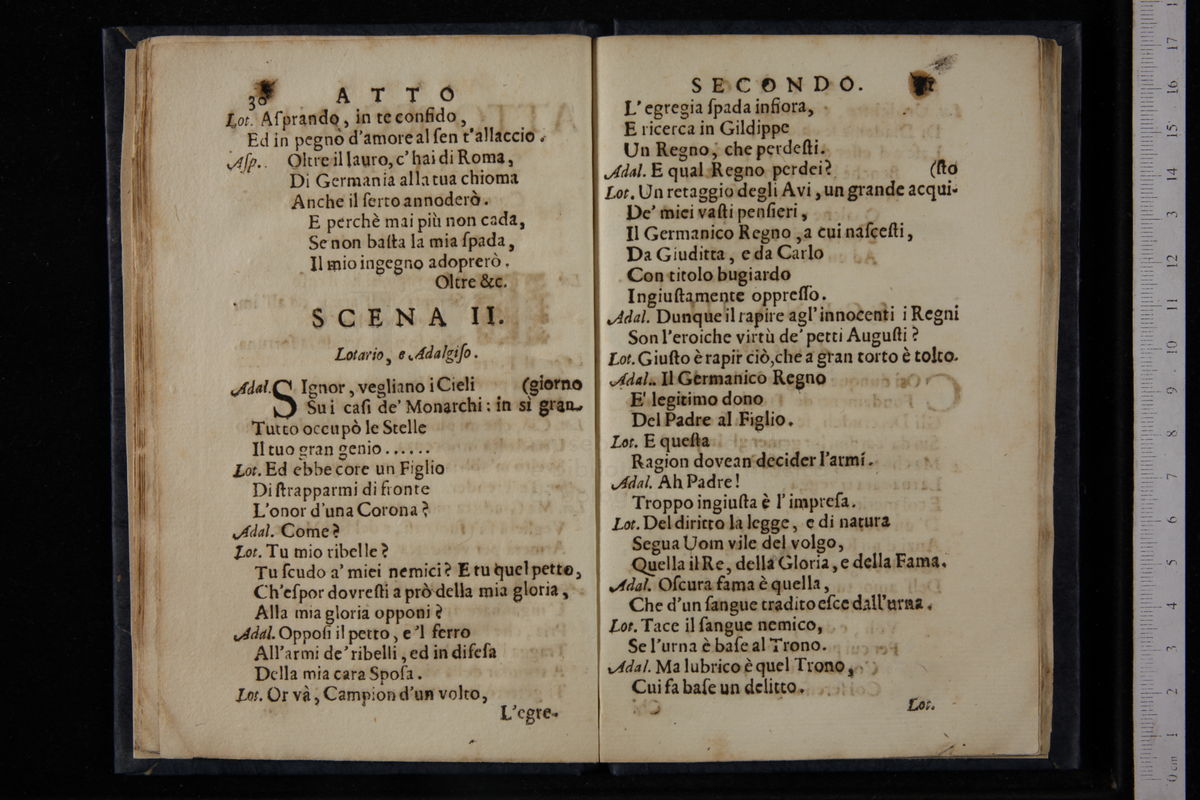 30
ATTO
Lot. Aſprando, in te confido,
Ed in pegno d'amore al ſen t'allaccio.
Aſp. Oltre il lauro, c'hai di Roma,
Di Germania alla tua chioma
Anche il ſerto annoderò.
E perchè mai più non cada,
Se non baſta la mia ſpada,
Il mio ingegno adoprerò.
Oltre &c.
SCENA II.
Lotario, e Adalgiſo.
Adal. SIgnor, vegliano i Cieli (giorno
Su i caſi de' Monarchi: in sì gran
Tutto occupò le Stelle
Il tuo gran genio......
Lot. Ed ebbe core un Figlio
Di ſtrapparmi di fronte
L'onor d'una Corona?
Adal. Come?
Lot. Tu mio ribelle?
Tu ſcudo a' miei nemici? E tu quel petto,
Ch'eſpor dovreſti a prò della mia gloria,
Alla mia gloria opponi?
Adal. Oppoſi il petto, e'l ferro
All'armi de' ribelli, ed in difeſa
Della mia cara Spoſa.
Lot. Or và, Campion d'un volto,
L'egre-
SECONDO.
L'egregia ſpada infiora,
E ricerca in Gildippe
Un Regno, che perdeſti.
Adal. E qual Regno perdei? (ſto
Lot. Un retaggio degli Avi, un grande acqui-
De' miei vaſti penſieri,
Il Germanico Regno, a cui naſceſti,
Da Giuditta, e da Carlo
Con titolo bugiardo
Ingiuſtamente oppreſſo.
Adal. Dunque il rapire agl'innocenti i Regni
Son l'eroiche virtù de' petti Auguſti?
Lot. Giuſto è rapir ciò, che a gran torto è tolto.
Adal. Il Germanico Regno
E' legitimo dono
Del Padre al Figlio.
Lot. E queſta
Ragion dovean decider l'armi.
Adal. Ah Padre!
Troppo ingiuſta è l'impreſa.
Lot. Del diritto la legge, e di natura
Segua Uom vile del volgo,
Quella il Re, della Gloria, e della Fama.
Adal. Oſcura fama è quella,
Che d'un ſangue tradito eſce dall'urna.
Lot. Tace il ſangue nemico,
Se l'urna è baſe al Trono.
Adal. Ma lubrico è quel Trono,
Cui fa baſe un delitto.
Lot.